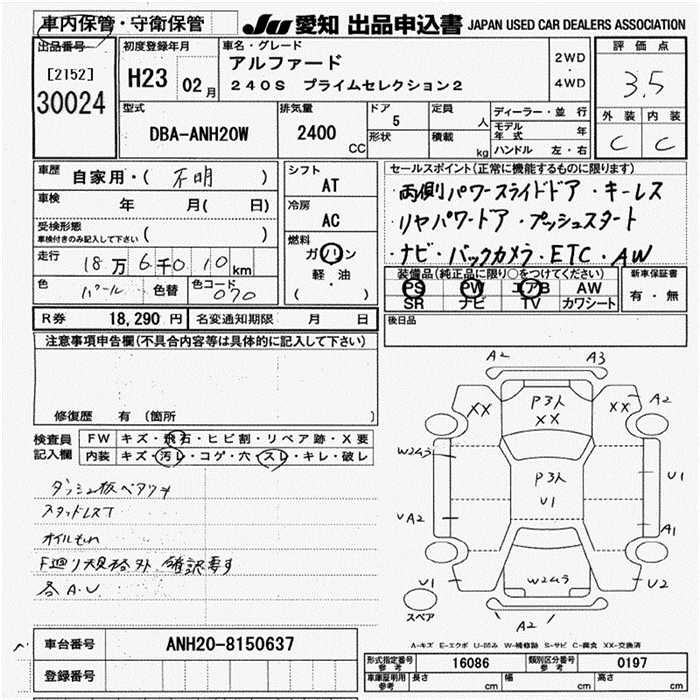 車内保管・守衛保管
JU 愛知 出品申込書 JAPAN USED CAR DEALERS ASSOCIATION
出品番号 初度登録年月 車名・グレード 評価点
[2152] H23 02月 アルファード 2WD
30024 240S プライムセレクション2 4WD 3.5
型式 排気量 ドア 定員 ディーラー・並行 外装 内装
DBA-ANH20W 2400 CC 5 人 モデル年式 年 C C
形状 積載 kg ハンドル 左・右
車歴 自家用・( 不明 ) シフト AT セールスポイント(正常に機能するものに限ります)
車検 年 月( 日) 冷房 AC ・両側パワースライドドア・キーレス
受検形態 ( ) ・リヤパワードア・プッシュスタート
車検付きのみ記入して下さい
走行 18万6千0 10km 燃料 ガソリン ・ナビ・バックカメラ・ETC・AW
軽・油
( )
色 パール 色替 色コード 070
装備品(純正品に限り○をつけてください) 新車保証書
PS PW エアB AW 有・無
SR ナビ TV カワシート
R券 18,290 円 名変通知期限 月 日 後日品
注意事項申告欄(不具合内容等は具体的に記入して下さい)
修復歴 有 (箇所 )
検査員記入欄 FW キズ・飛石・ヒビ割・リペア跡・X要
内装 キズ・汚レ・コゲ・穴・スレ・キレ・破レ
ダッシュ板ベタツキ
スタッドレスT
オイルもれ
F廻り規格外 確認要す
各A.U
A2 A3
XX P3人 XX XX A2
W2ムラ P3人 U1 U1
A2 A1
U1 W2ムラ U2
スペア A2
A-キズ E-エクボ U-凹み W-補修跡 S-サビ C-腐食 XX-交換済
車台番号 ANH20-8150637
登録番号
形式指定番号 参考 16086 類別区分番号 参考 0197
車庫証明用 参考 長さ cm 幅 cm 高さ cm